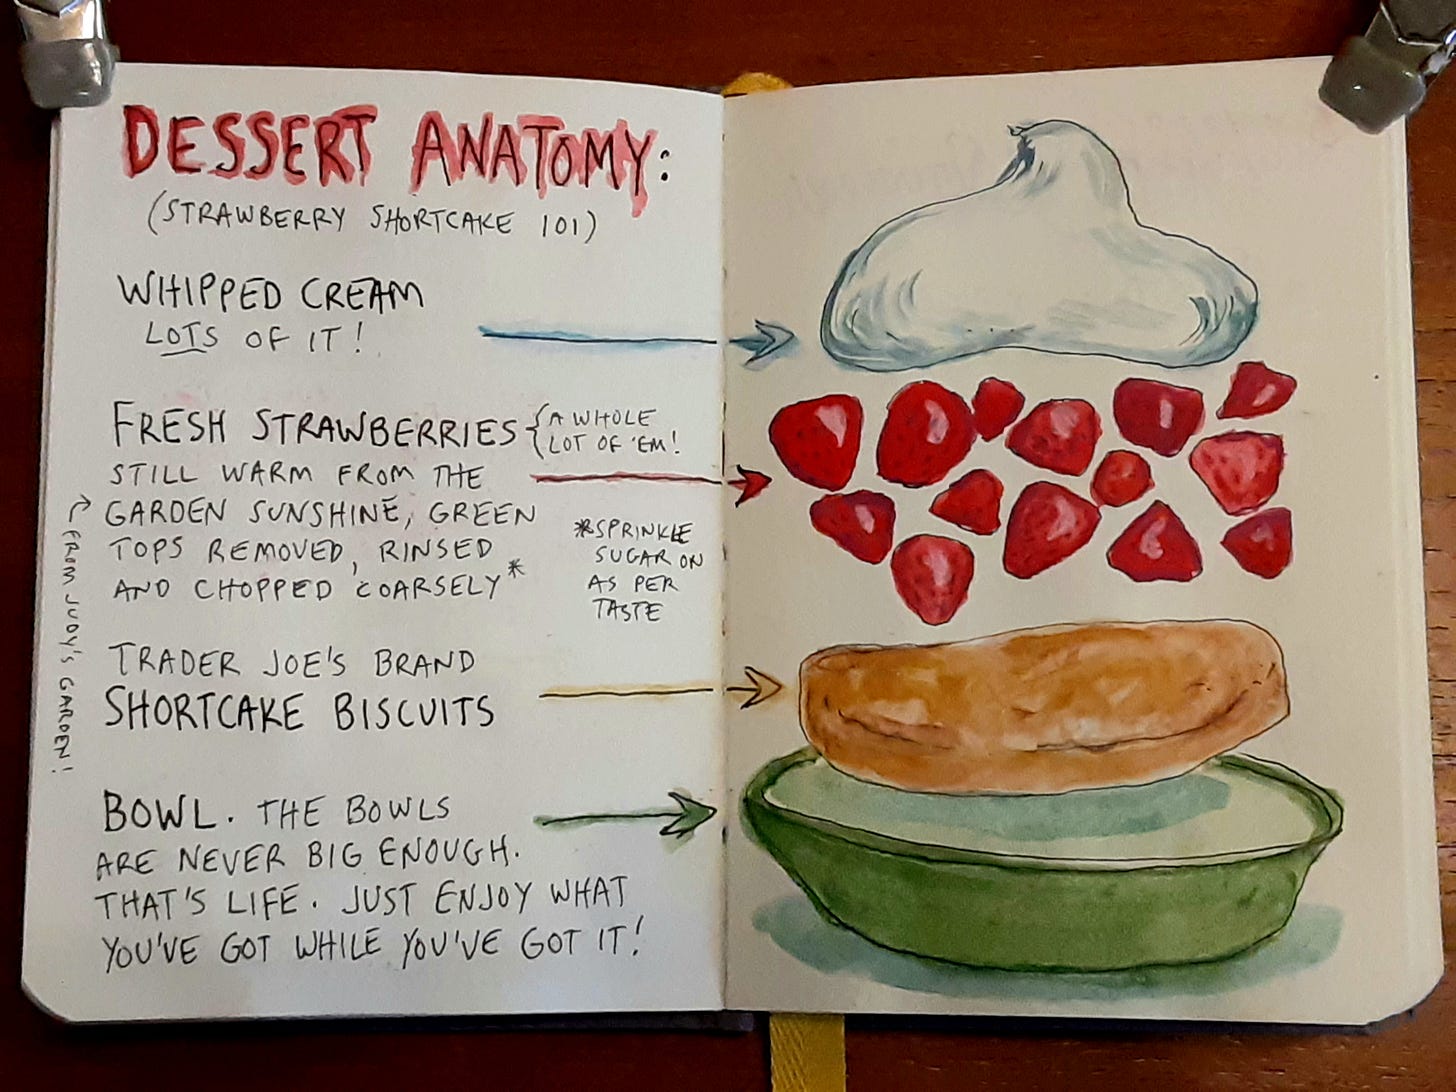 DESSERT ANATOMY:
(STRAWBERRY SHORTCAKE 101)
WHIPPED CREAM
LOTS OF IT!
FRESH STRAWBERRIES
{A WHOLE
LOT OF 'EM!
STILL WARM FROM THE
GARDEN SUNSHINE, GREEN
TOPS REMOVED, RINSED
AND CHOPPED COARSELY*
FROM JUDY'S GARDEN!
*SPRINKLE
SUGAR ON
AS PER
TASTE
TRADER JOE'S BRAND
SHORTCAKE BISCUITS
BOWL. THE BOWLS
ARE NEVER BIG ENOUGH.
THAT'S LIFE. JUST ENJOY WHAT
YOU'VE GOT WHILE YOU'VE GOT IT!